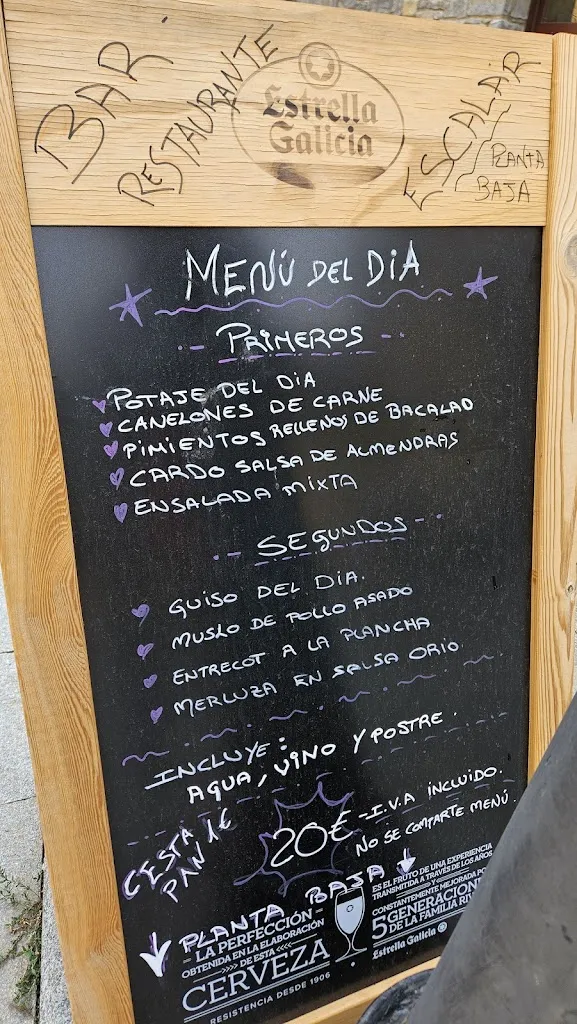 BAR
RESTAURANTE
Estrella
Galicia
ESCALAR
PLANTA
BAJA
MENÚ DEL DIA
PRIMEROS
POTAJE DEL DIA
CANELONES DE CARNE
PIMIENTOS RELLENOS DE BACALAO
CARDO SALSA DE ALMENDRAS
ENSALADA MIXTA
SEGUNDOS
GUISO DEL DIA.
MUSLO DE POLLO ASADO
ENTRECOT A LA PLANCHA
MERLUZA EN SALSA ORIO
INCLUYE:
AGUA, VINO Y POSTRE.
CESTA
PAN 1€
20€ - I.V.A INCLUIDO.
NO SE COMPARTE MENÚ.
PLANTA BAJA
LA PERFECCIÓN
OBTENIDA EN LA ELABORACIÓN
DE ESTA
CERVEZA
RESISTENCIA DESDE 1906
ES EL FRUTO DE UNA EXPERIENCIA
TRANSMITIDA A TRAVÉS DE LOS AÑOS
Y
CONSTANTEMENTE MEJORADA
5 GENERACION
DE LA FAMILIA
Estrella Galicia